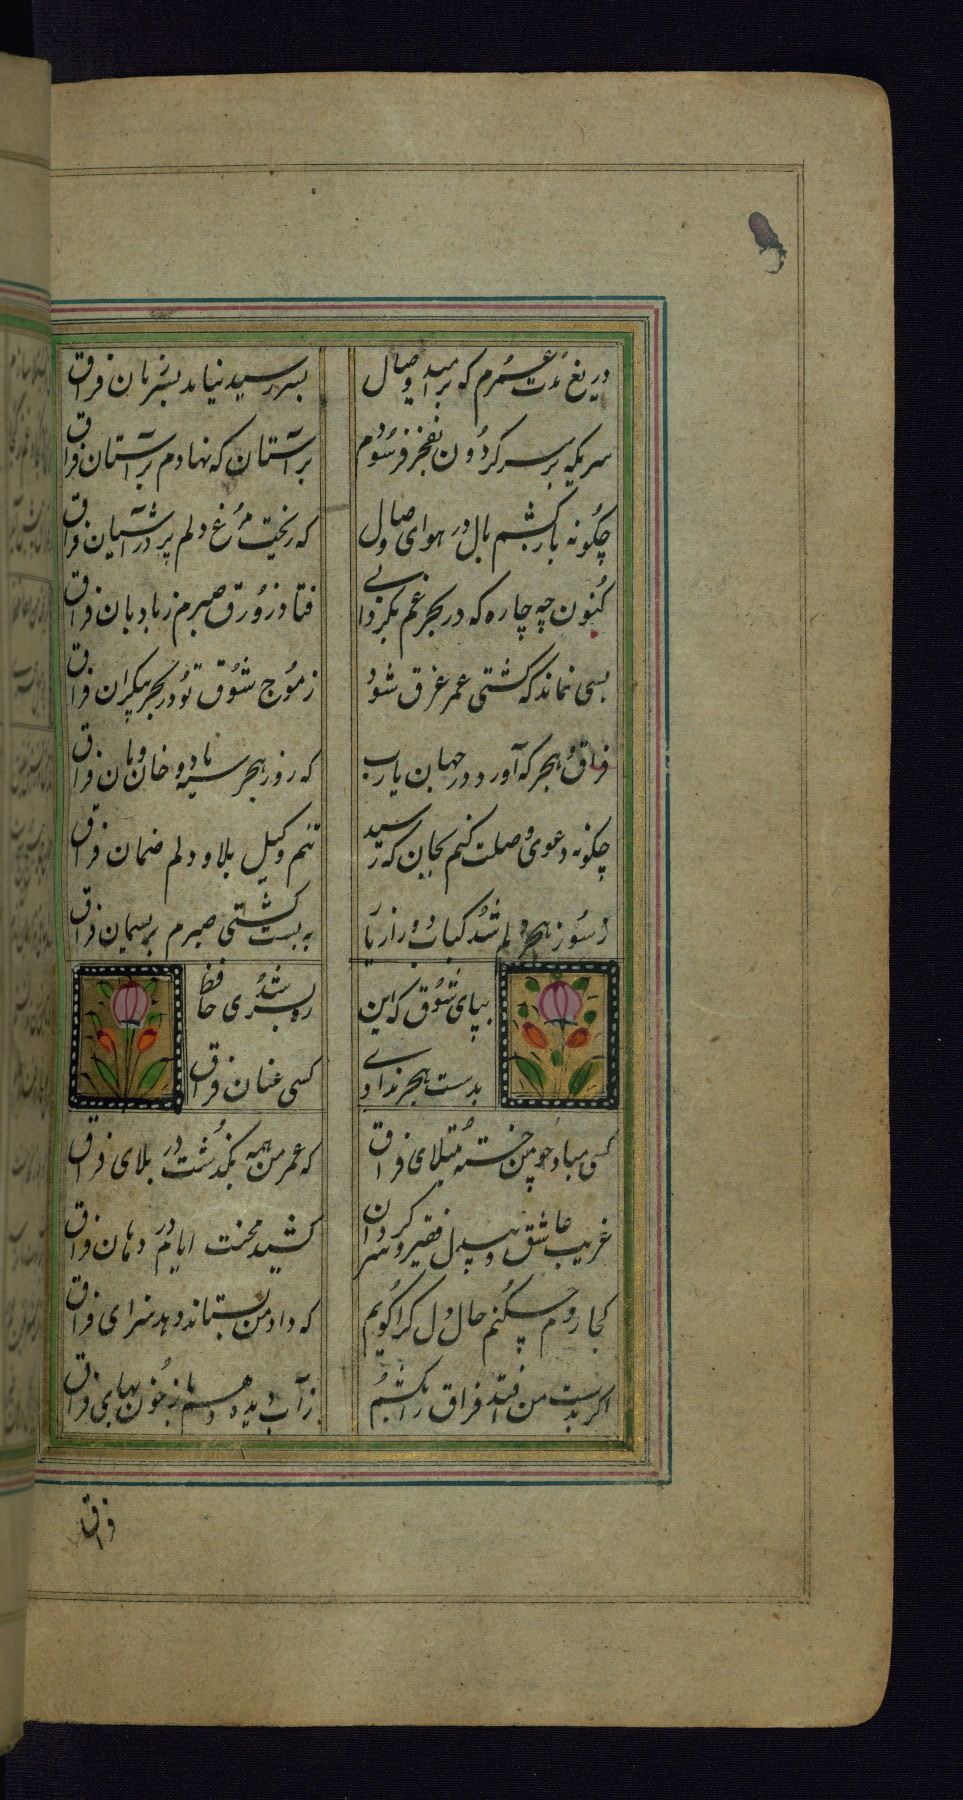 دریغ مدت عمرم که بر امید وصال
بسر رسید نیامد بسر زمان فراق
سریکه بر سر گردون بفخر فرسودم
بر آستان که نهادم بر آستان فراق
چگونه باز کشم بال در هوای وصال
که ریخت مرغ دلم پر در آشیان فراق
کنون چه چاره که در بحر غم بگردابی
فتاد زورق صبرم ز بادبان فراق
بسی نماند که کشتی عمر غرق شود
ز موج شوق تو در بحر بیکران فراق
فراق و هجر که آورد در جهان یارب
که روز هجر سیه باد و خان و مان فراق
چگونه دعوی وصلت کنم بجان که رسید
تنم وکیل بلا و دلم ضمان فراق
ز سوز هجر دلم شد کباب دور از یار
به بست کشتی صبرم بریسمان فراق
بپای شوق که این
ره بسر شدی حافظ
بدست هجر ندادی
کسی عنان فراق
کسی مباد چو من خسته مبتلای فراق
که عمر من همه بگذشت در بلای فراق
غریب و عاشق و بیدل فقیر و سرگردان
کشید محنت ایام در دهان فراق
کجا روم چکنم حال دل کرا گویم
که داد من بستاند دهد سزای فراق
اگر بدست من افتد فراق را بکشم
ز آب دیده دهم باز خون بهای فراق
فراق